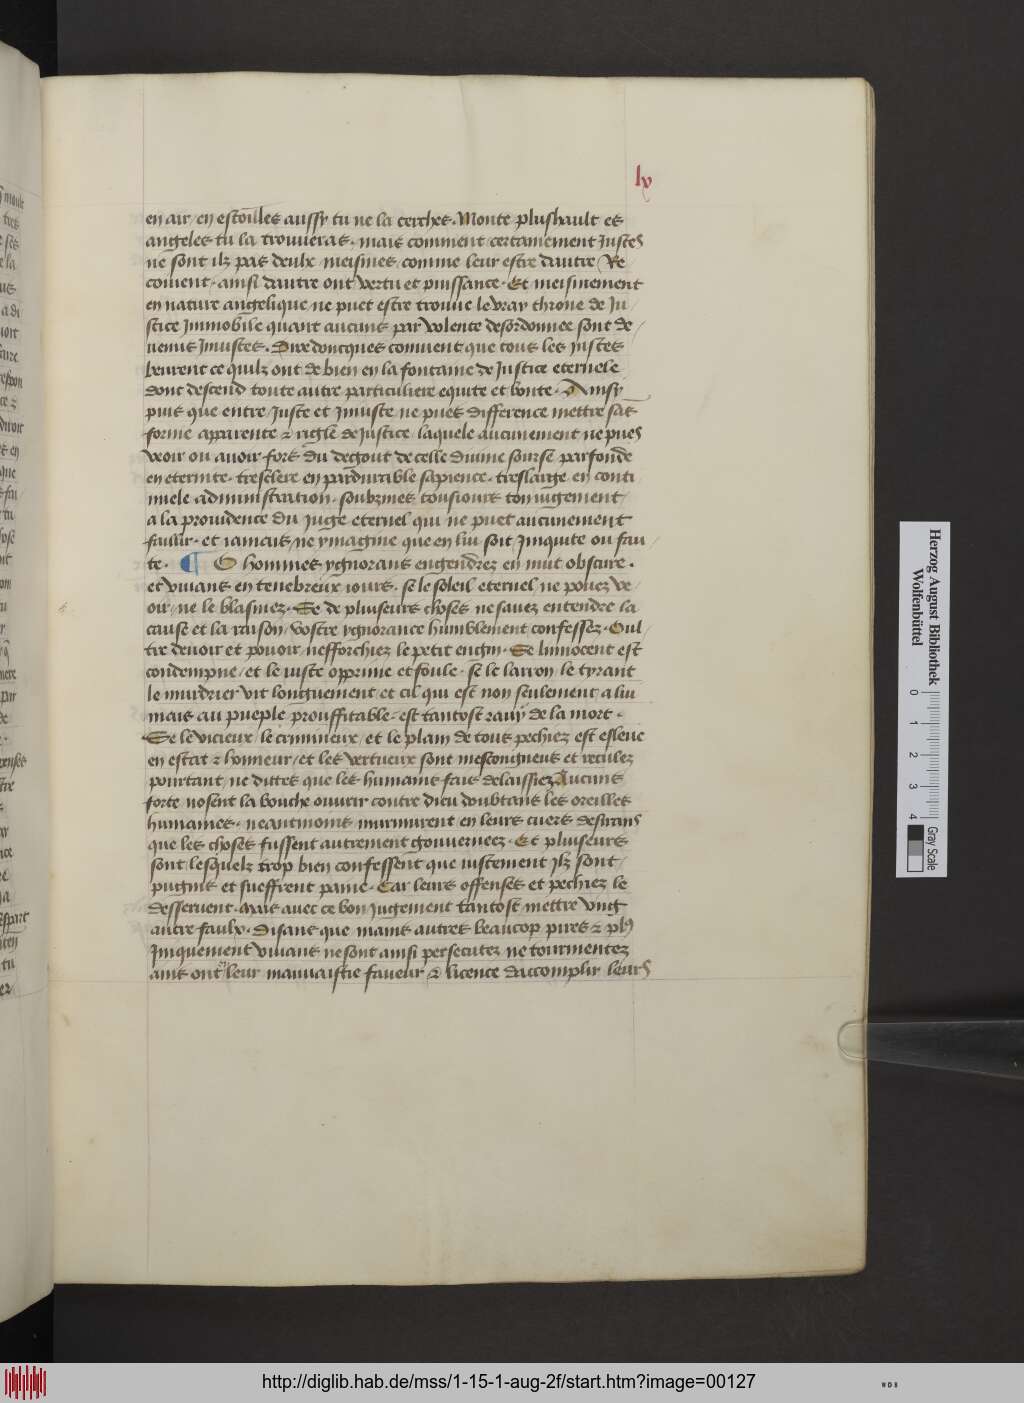 lv
en air / en estoilles aussy tu ne la cerches . Monte plushault es
angeles tu la trouueras . mais comment certainement Justes
ne sont ilz pas deulx meismes / comme leur estre dautre Re
coiuent . ainsi dautre ont vertu et puissance . Et meismement
en nature angelique ne puet estre trouue le vray throne de Ju
stice Immobile quant aucuns par volente desordonnee sont de /
uenus Jniustes . Dire doncques conuient que tous les Justes
beuuent ce quilz ont de bien en la fontaine de Justice eternele
dont descend toute autre particuliere equite et bonte . Ainsy
puis que entre / Juste et Jniuste ne pues difference mettre sās
forme apparente ⁊ rigle de Justice / laquele aucunement ne pues
veoir ou auoir fors du degout de celle diuine sourse parfonde
en eternite . tresclere en pardurable sapience . treslarge en conti
nuele administration . soubzmes tousiours ton iugement
a la prouidence du Juge eternel qui ne puet aucunement
faillir . et iamais / ne ymagine que en lui soit Jniquite ou fau /
te . ¶ O hommes ygnorans engendrez en nuit obscure .
et viuans en tenebreux iours . se le soleil eternel ne pouez ve
oir / ne le blasmez . Se de pluiseurs choses ne sauez entendre la
cause et la raison / vostre ygnorance humblement confessez . Oul /
tre deuoir et pouoir nefforchiez le petit engin . Se linnocent est
condempne / et le iuste opprime et foule . se le larron / le tyrant
le murdrier vit longuement et cil qui est non seulement a lui
mais au pueple prouffitable / est tantost rauy de la mort .
Se le vicieux / le crimineux / et le plain de tous pechiez est esleue
en estat ⁊ honneur / et les vertueux sont mescongneus et reculez
pourtant ne dittes que les humains fais delaissiez Aucuns
forte nosent la bouche ouurir contre dieu doubtans les oreilles
humaines . neantmoins murmurent en leurs cuers desirans
que les choses fussent autrement gouuernees . Et pluiseurs
sont / lesquelz trop bien confessent que iustement ylz sont
pugnis et sueffrent paine . Car leurs offenses et pechiez le
desseruent . Mais auec ce bon iugement tantost mettre vng
autre faulx . Disans que mains autres beaucop pires ⁊ plus
Jniquement viuans ne sont ainsi persecutez ne tourmentez
ains ont leur mauuaistie faueur ⁊ licence daccomplir leurs
Herzog August Bibliothek
Wolfenbüttel
0 1 2 3 4
Gray Scale
http://diglib.hab.de/mss/1-15-1-aug-2f/start.htm?image=00127
WDB